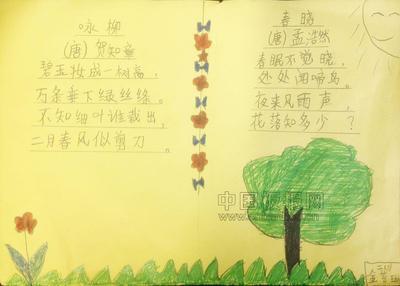 咏柳
(唐)贺知章
碧玉妆成一树高，
万条垂下绿丝绦。
不知细叶谁裁出，
二月春风似剪刀。
春晓
(唐)孟浩然
春眠不觉晓，
处处闻啼鸟。
夜来风雨声，
花落知多少？